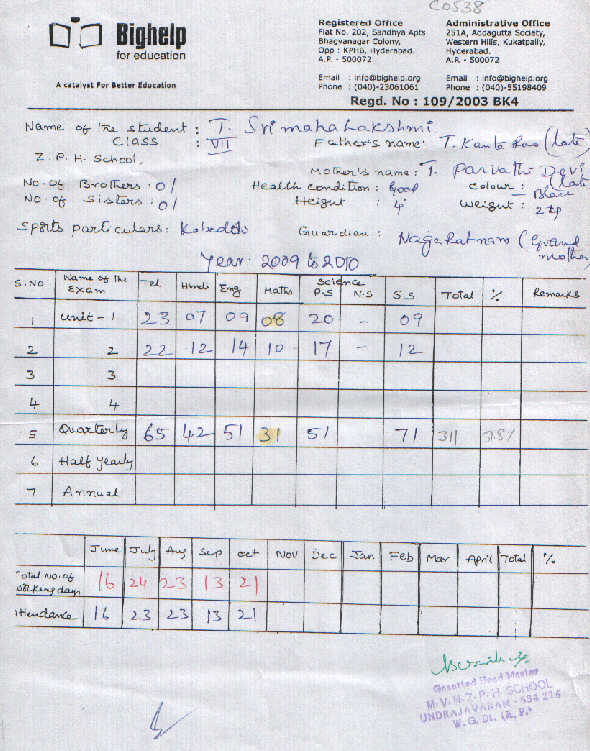 C0538
Bighelp
for education
A catalyst For Better Education
Registered Office
Flat No. 202, Sandhya Apts
Bhagyanagar Colony,
Opp : KPHB, Hyderabad.
A.P. - 500072
Email : info@bighelp.org
Phone : (040)-23061061
Administrative Office
251A, Addagutta Society,
Western Hills, Kukatpally,
Hyderabad.
A.P. - 500072
Email : info@bighelp.org
Phone : (040)-55198409
Regd. No : 109/2003 BK4
Name of the student : T. Srimahalakshmi
Class : VII Father's name: T. Kanta Rao (late)
Z.P.H. School,
Mother's name: T. Parvathi Devi (late)
No. of Brothers : 01 Health condition : Good Colour :
No. of Sisters : 01 Height : 4' Weight :
Sports particulars: Kabaddi Guardian : Nagaratnam (Grand mother)
Year 2009 to 2010
S.NO Name of the Exam Tel Hindi Eng Maths Science P.S N.S S.S Total % Remarks
1 Unit - 1 23 07 09 08 20 - 09
2 2 22 12 14 10 17 - 12
3 3
4 4
5 Quarterly 65 42 51 31 51 71 311
6 Half yearly
7 Annual
June July Aug Sep Oct Nov Dec Jan Feb Mar April Total %
Total No. of working days 16 24 23 13 21
Attendance 16 23 23 13 21
Gazetted Head Master
M.V.N.Z.P.H. SCHOOL
UNDRAJAVARAM - 534 216
W. G. Dt. (A. P.)